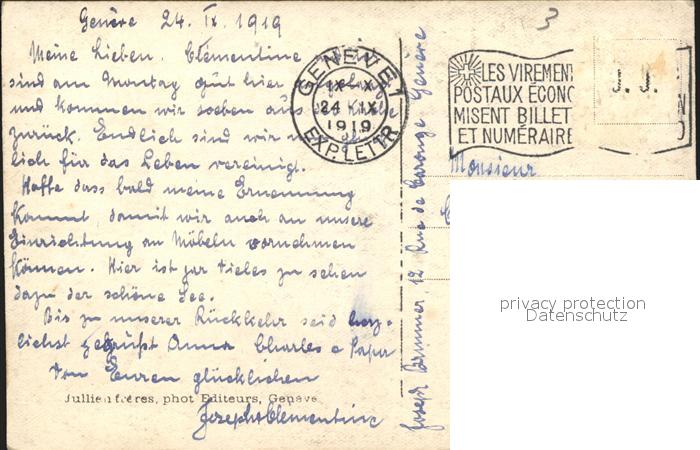 Genève 24. IX. 1919
Meine Lieben. Clémentine
sind am Montag gut hier
und kommen wir soeben aus der Kirche
zurück. Endlich sind wir
lich für das Leben vereinigt.
Hoffe dass bald meine Ernennung
kommt damit wir auch an unsere
Einrichtung an Möbeln vornehmen
können. Hier ist gar vieles zu sehen
dazu der schöne See.
Bis zu unserer Rückkehr seid herz-
lichst gegrüßt Anna Charles e Papa
von Euren glücklichen
Joseph e Clémentine
Jullien frères, phot Editeurs, Genève
GENEVE 1
IX - X
24 IX
1919
EXP. LETTR
LES VIREMEN
POSTAUX ÉCONO
MISENT BILLET
ET NUMÉRAIRE
J. J.
3
Monsieur
Joseph 12 Rue de Carouge Genève
privacy protection
Datenschutz